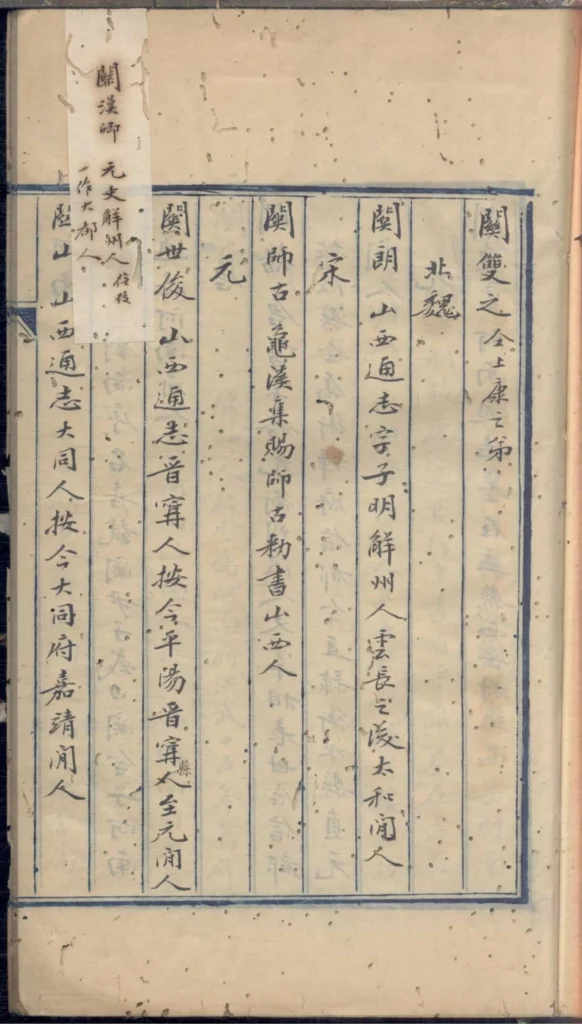 關雙之 仝上康之弟
北魏
關朗 山西通志字子明解州人雲長之後太和間人
宋
關師古 龜溪集賜師古勅書山西人
元
關世俊 山西通志晉寗人按今平陽晉寗縣人至元間人
關漢卿 元史解州人
一作大都人
關山 山西通志大同人按今大同府嘉靖間人